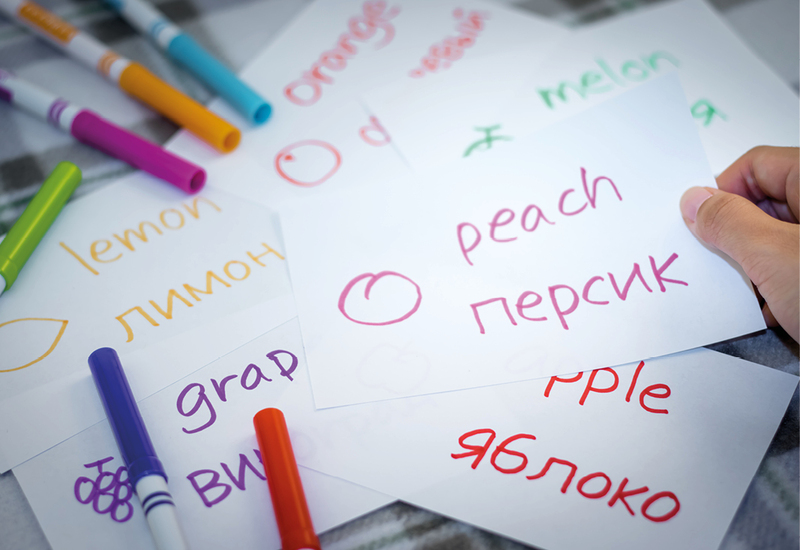 orange
melon
я
lemon
лимон
peach
персик
grap
ви
pple
яблоко